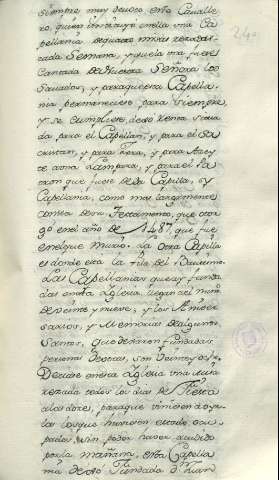 siempre muy devoto este Cavalle
ro, quien instituyo en ella una Ca
pellania de quatro misas rezadas
cada Semana, y que la una fuese
Cantada de Nuestra Señora los
Savados, y para que esta Capella
nia permaneciese para siempre,
y se cumpliese, dexo renta situa
da para el Capellan, y para el Sa
cristan, y para Zera, y para Azey
te a una Lampara, y para el Pa
tron que fuese de la Capilla, y
Capellania, como mas largamente
consta de su Testamento, que otor
go en el año de 1487, que fue
en el que murio. La otra Capilla
es donde esta la Pila del Bautismo.
Las Capellanias que ay funda
das en esta Yglesia llegan al num.
de veinte y nueve, y los Aniver
sarios, y Memorias de algunos
Santos, que dexaron fundadas
personas devotas, son veinte y
Dezíase en esta Yglesia una misa
rezada todos los dias de Fiesta
a las doze, para que tuviesen a oyr
la los que huviesen estado ocu
pados, sin poder haver acudido
por la mañana, esta Capella
nia dexo fundada D. Juan
240